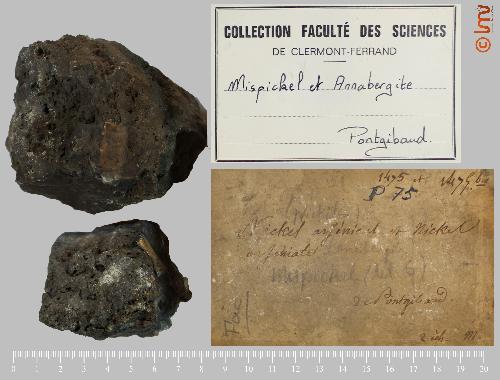 COLLECTION FACULTÉ DES SCIENCES
DE CLERMONT-FERRAND
Mispickel et Annabergite
Pontgibaud.
1475 et 1475 bis
P 75
Nickel arsenical et Nickel
arséniaté
Mispickel
de Pontgibaud.
2 éch.
0 1 2 3 4 5 6 7 8 9 10 11 12 13 14 15 16 17 18 19 20